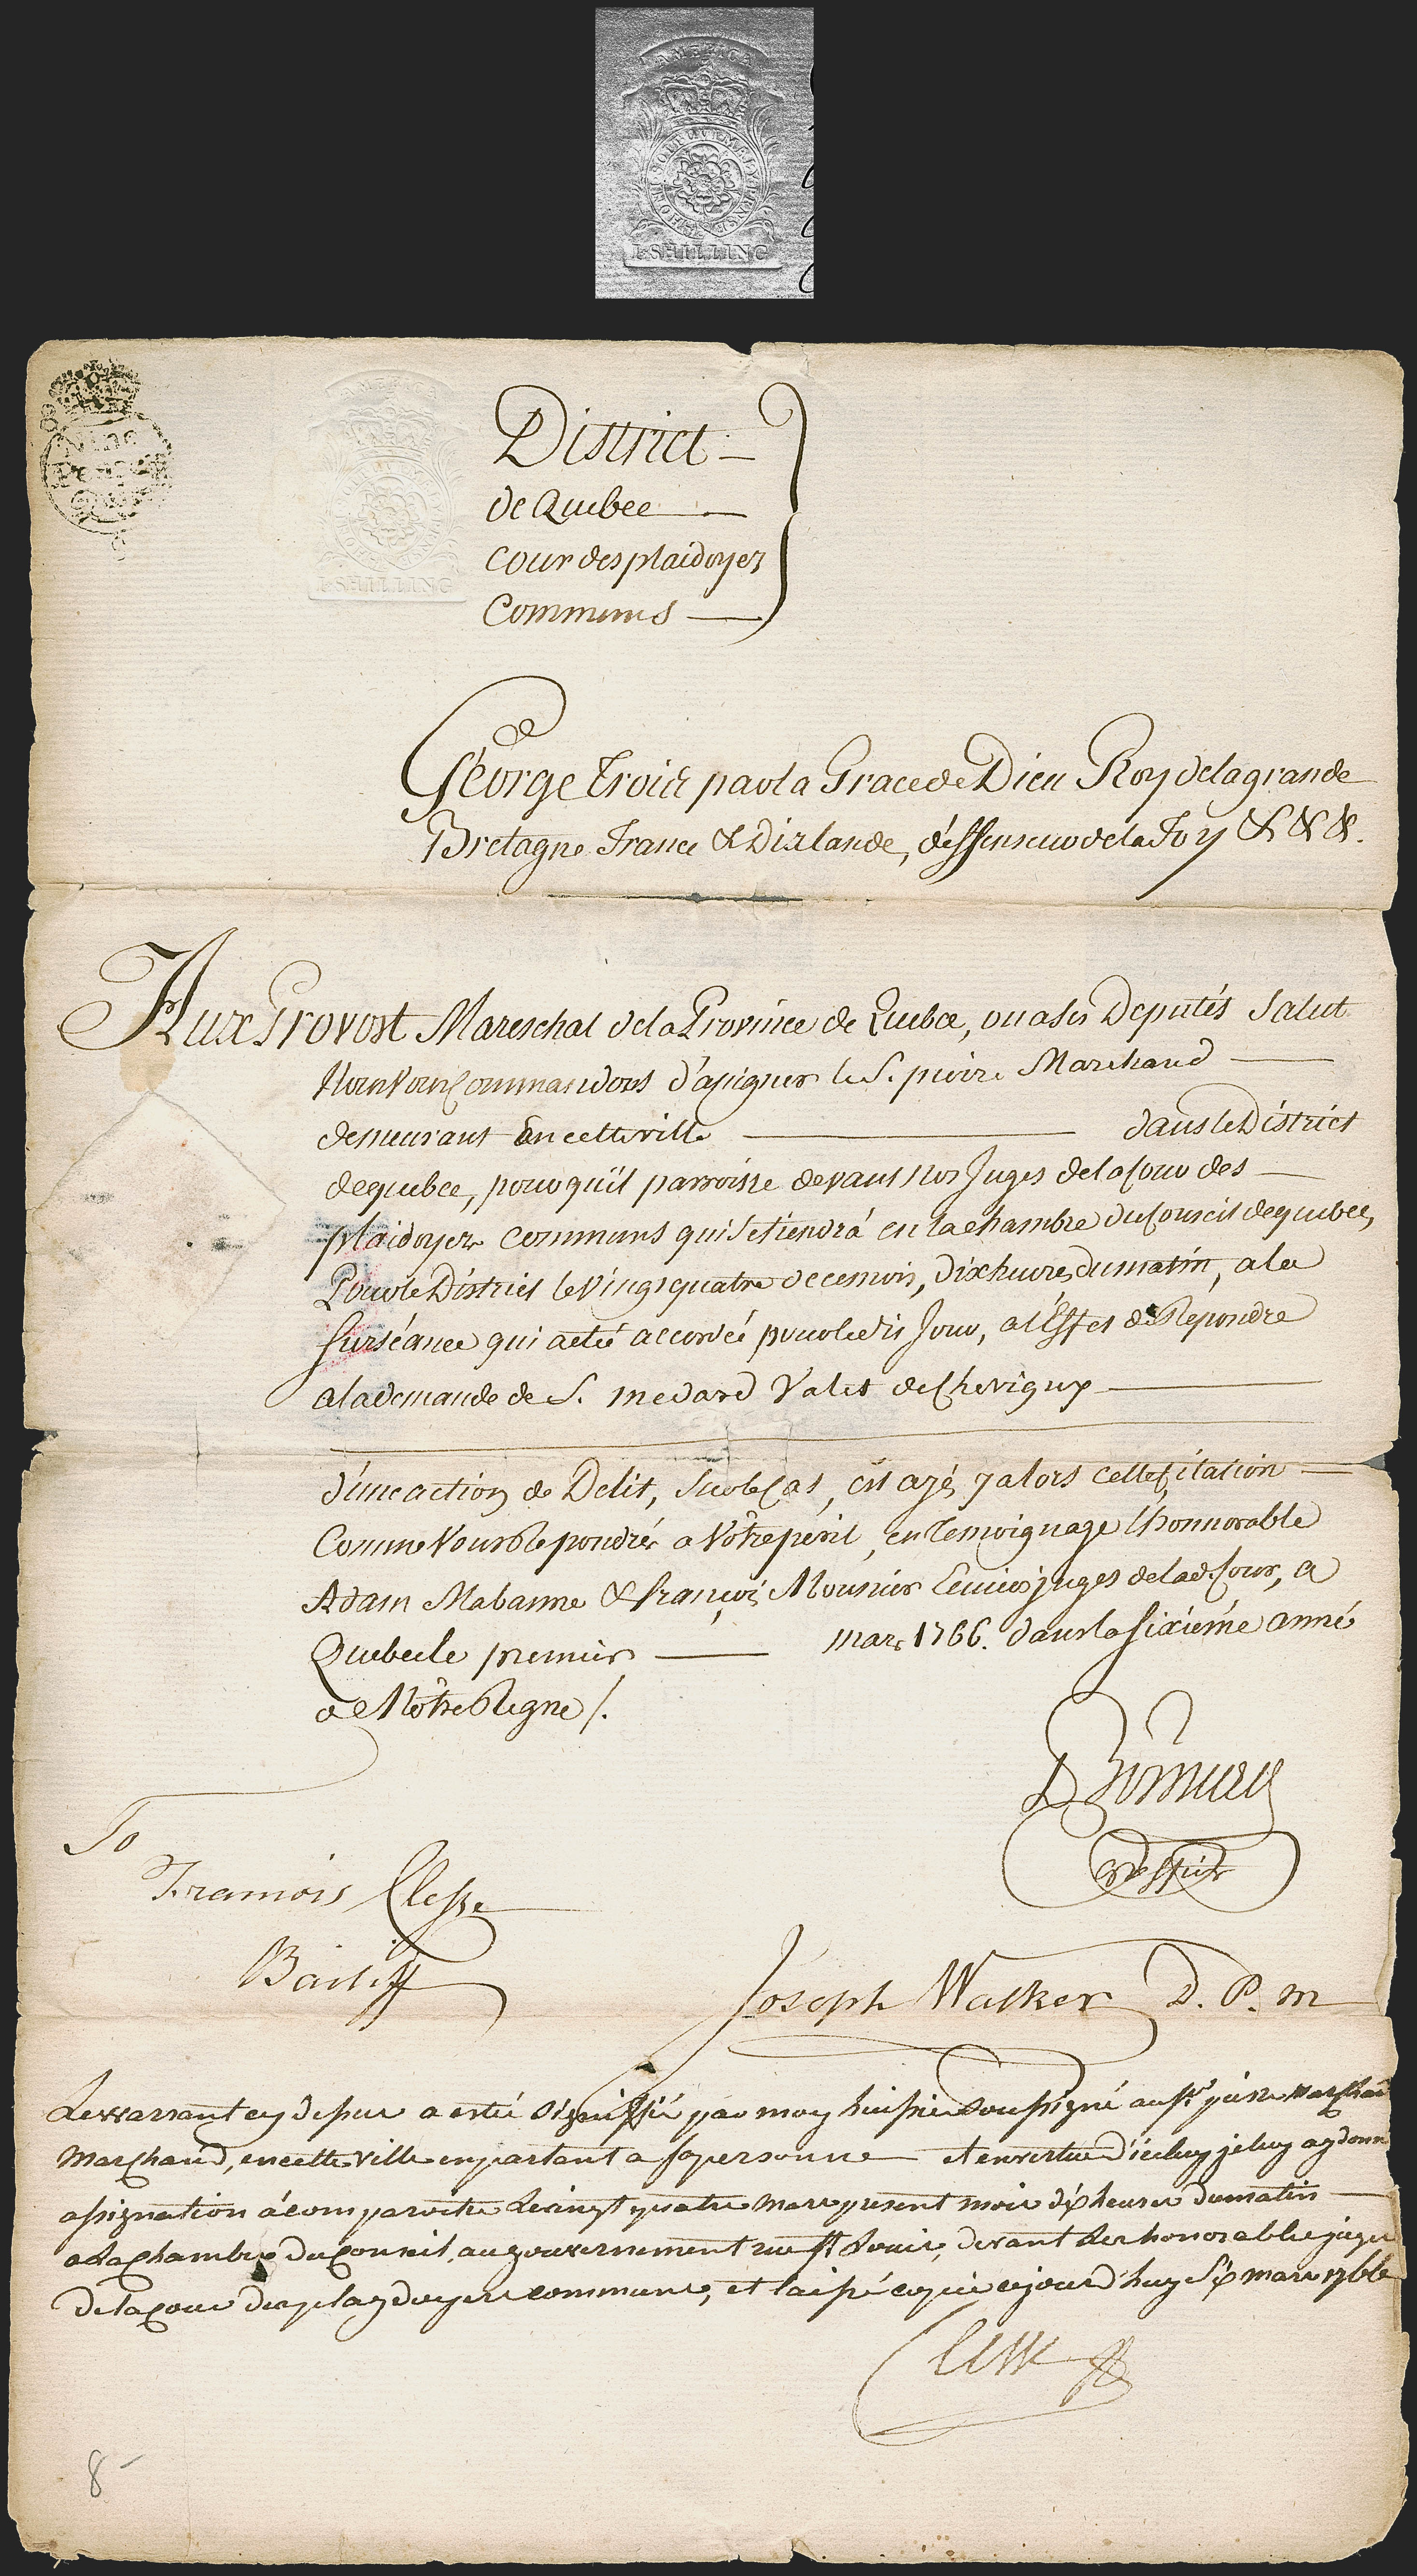 AMERICA
HONI SOIT QUI MAL Y PENSE
I SHILLING
Nine
Pence
Quire
AMERICA
I SHILLING
District
de Quebec
Cour des plaidoyez
Communs
George trois par la Grace de Dieu Roy de la grande
Bretagne France & Dirlande, déffenseur de la Foy & & &.
Aux Provost Mareschal de la Province de Quebec, ou a ses Deputés Salut
Nous Vous Commandons d'asigner le S. pierre Marchand
demeurant En cette ville dans le District
de quebec, pour qu'il parroisse devant Nos Juges de la Cour des
plaidoyers Communs qui se tiendra en la chambre du Conseil de quebec,
Pour le District le Vingt quatre de ce mois, dix heures du matin, a la
surséance qui a eté accordée pour le dit Jour, a l'Effet de Repondre
a la demande de S. medard Valet de Chevigny
d'une action de Delit, sur le Cas, et ayé y alors cette Citation
Comme Vous Repondrés a Vôtre péril, en temoignage l'honnorable
Adam Mabanne & françois Mounier Ecuiers juges de la d. Cour, a
Quebec le premier mars 1766. dans la sixiéme anné
de Nôtre Regne /.
Greffier
To
Francois Clesse
Bailiff
Joseph Walker D. P. M
Le warrant cy dessus a esté signiffié par moy huissier Soussigné au Sr. pierre Marchand
Marchand, en cette ville en parlant a sa personne et en vertue d'iceluy je luy ay donné
assignation á comparoitre le vingt quatre mars present mois dix heures du matin
a la Chambre du Conseil, au gouvernement rue St. Louis, devant les honorables juges
de la Cour des playdoyers communs, et laissé copie ce jourd'huy six mars 1766
Clesse
8